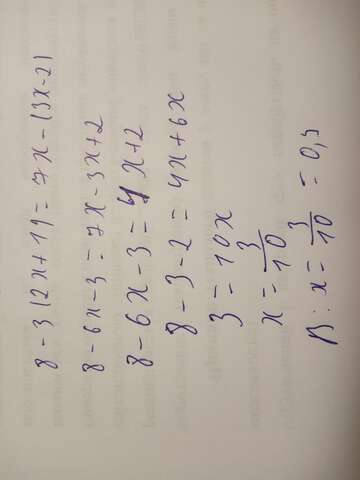 8 - 3 (2x + 1) = 7x - (3x - 2)
8 - 6x - 3 = 7x - 3x + 2
8 - 6x - 3 = 4x + 2
8 - 3 - 2 = 4x + 6x
3 = 10x
x = 3/10
В: x = 3/10 = 0,3